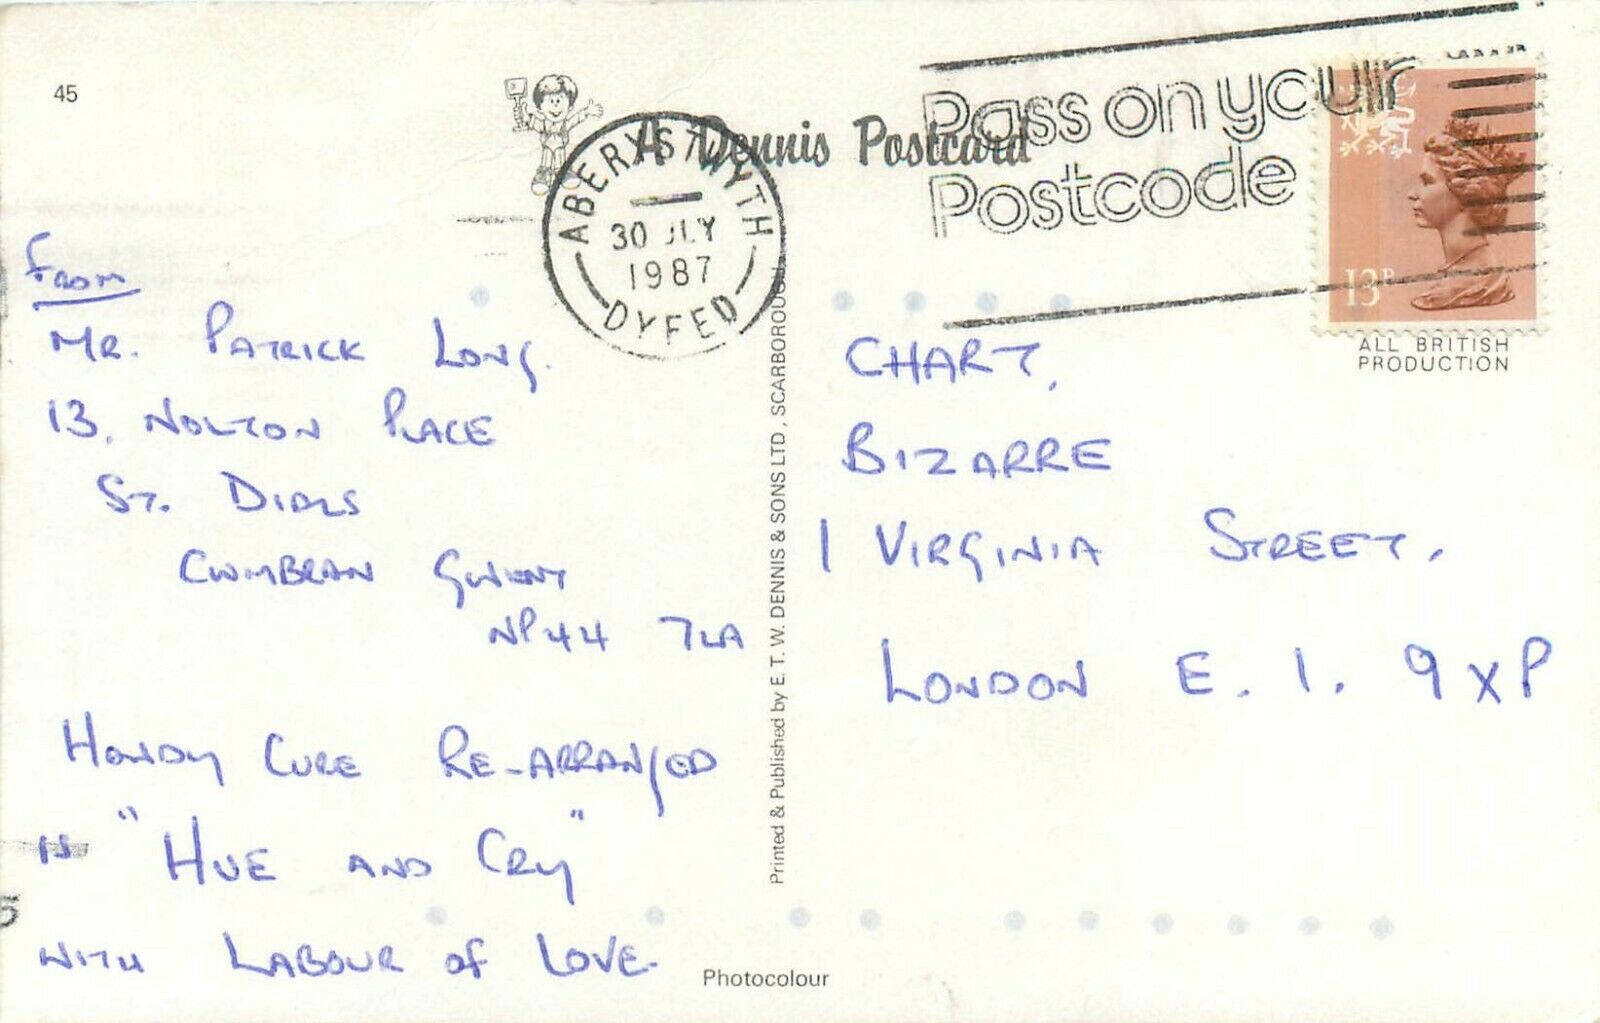 45
A Dennis Postcard
Pass on your
Postcode
ABERYSTWYTH
30 JLY
1987
DYFED
13P
ALL BRITISH
PRODUCTION
From
MR. PATRICK LONG.
13, NOLTON PLACE
ST. DIALS
CWMBRAN GWENT
NP44 7LA
HOWDY CURE RE-ARRANGED
IS "HUE AND CRY"
WITH LABOUR OF LOVE.
Printed & Published by E. T. W. DENNIS & SONS LTD, SCARBOROUGH
CHART,
BIZARRE
1 VIRGINIA STREET,
LONDON E. 1. 9XP
Photocolour